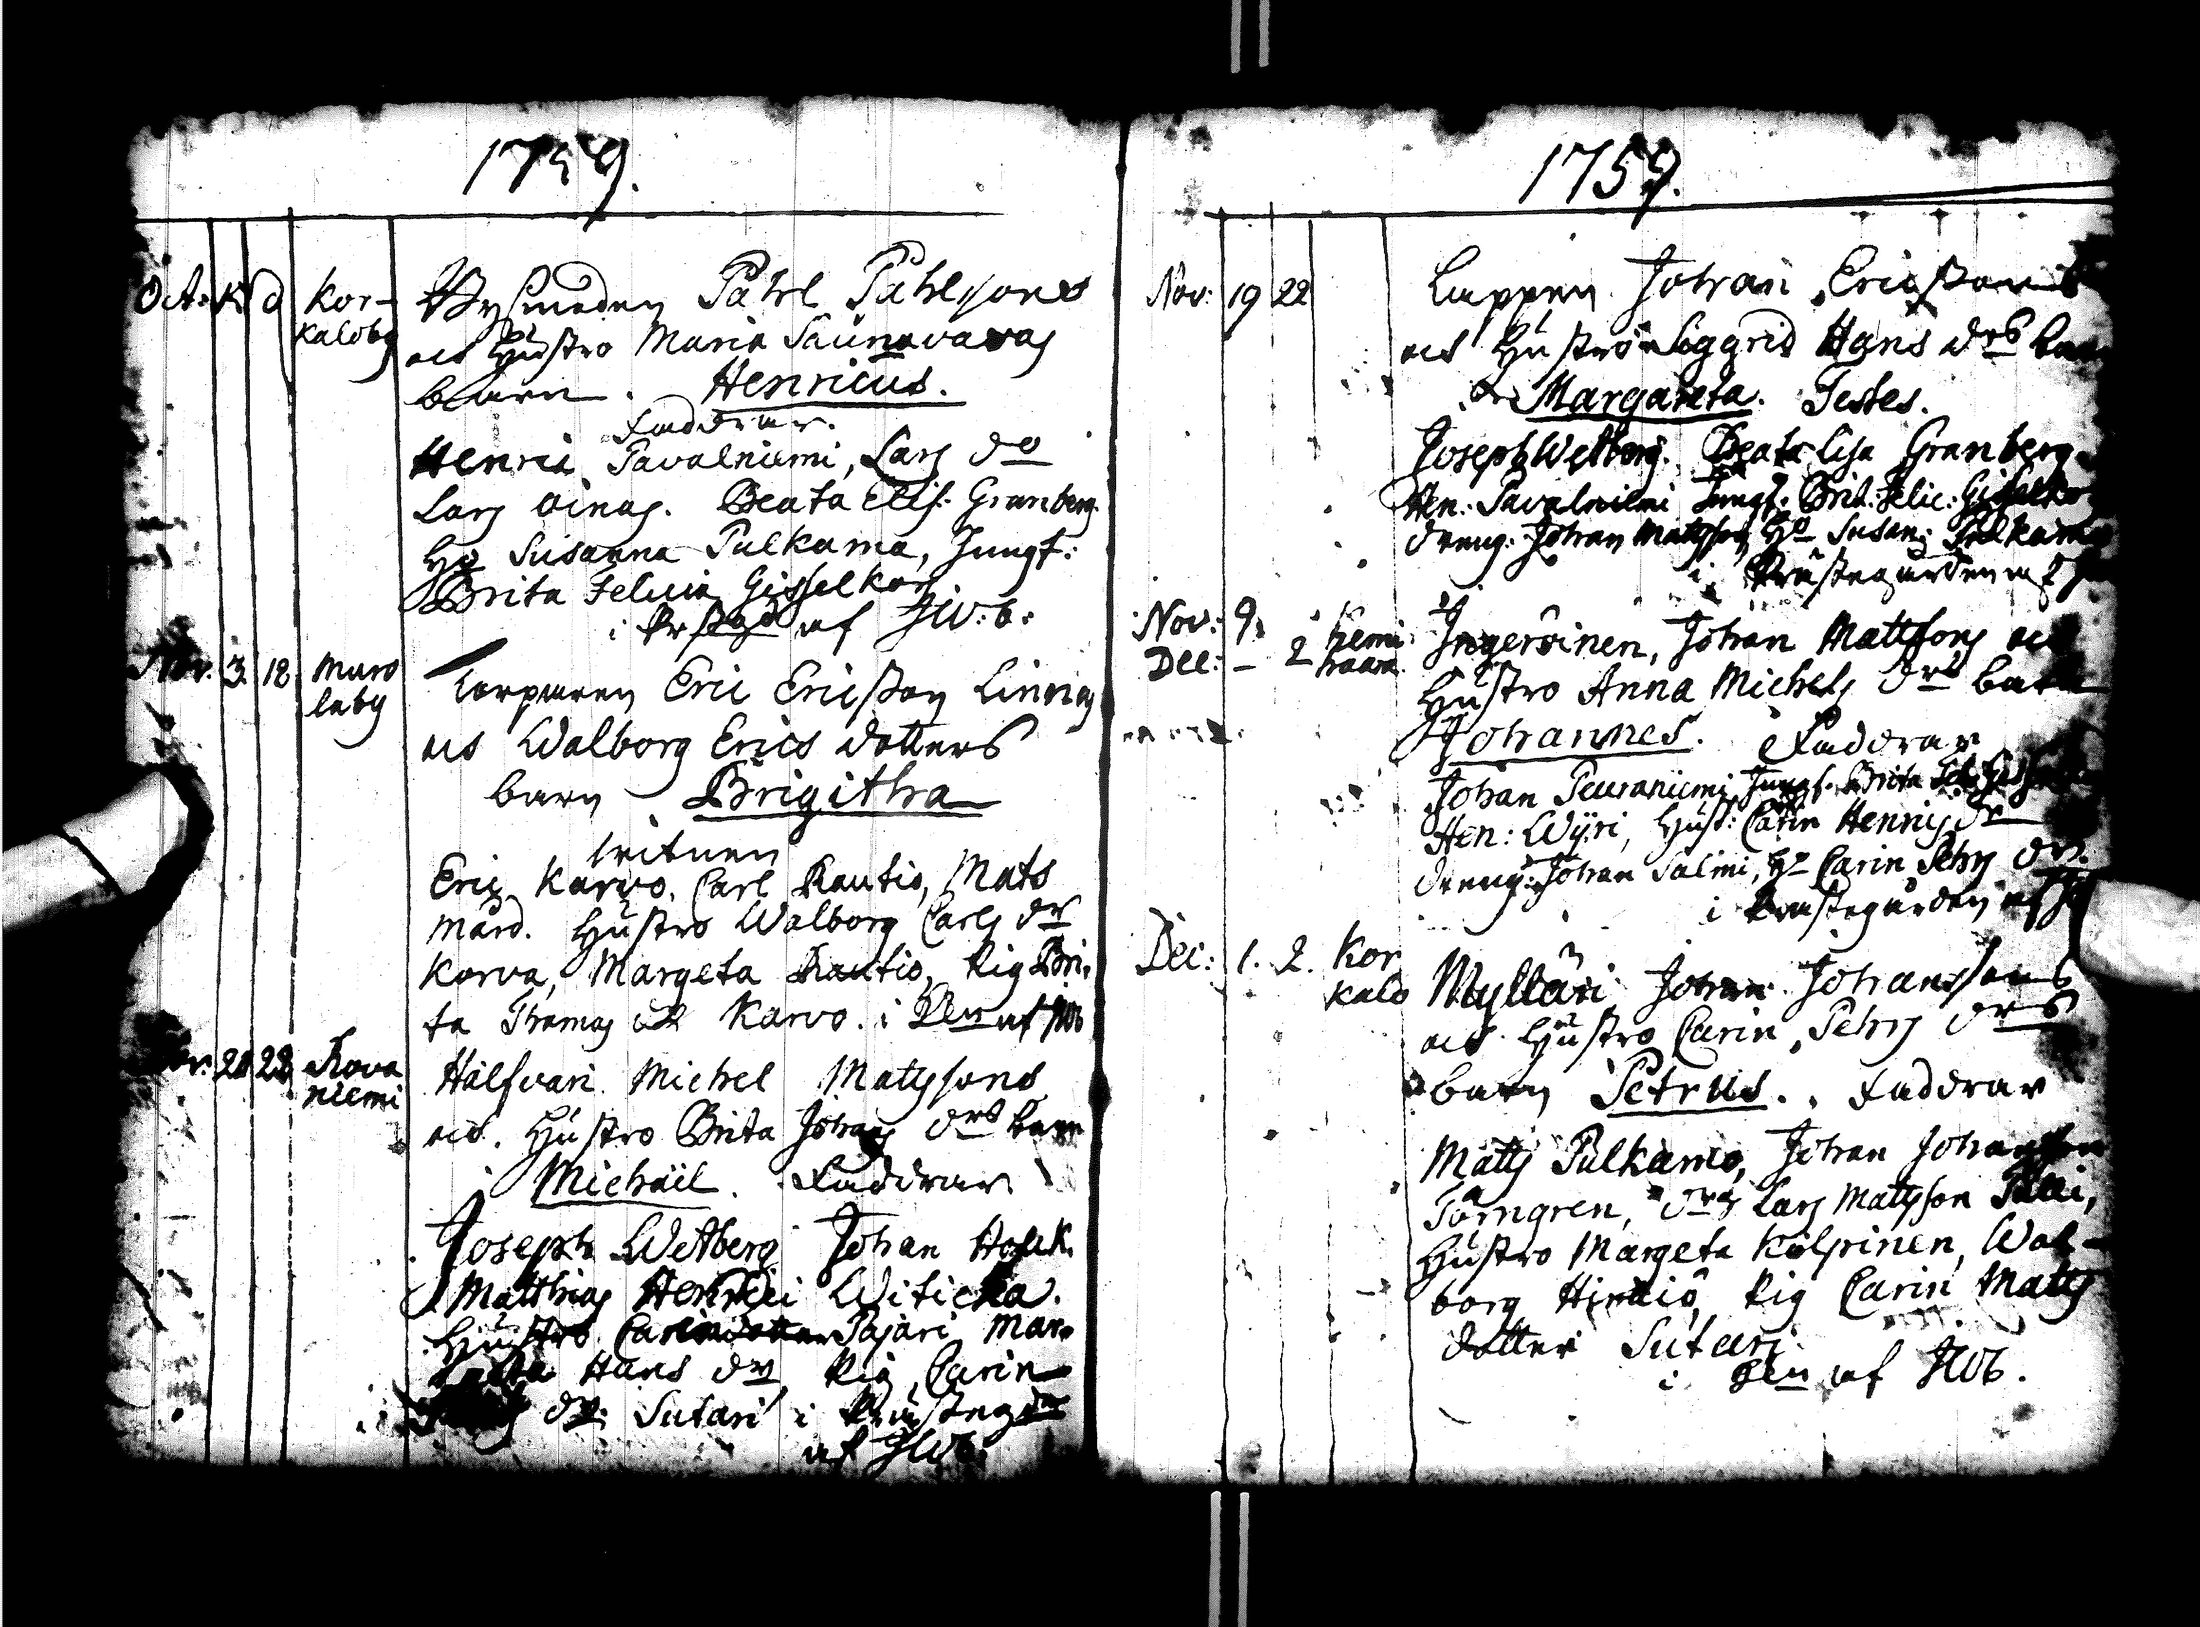 1759.
Oct: Kor- Bysmeden Påhl Påhlsons
kaloby och Hustro Maria Saunavaras
barn. Henricus.
Faddrar.
Henric Pavalniemi, Lars do
Lars Oinas. Beata Elis: Granberg.
Ho Susanna Pulkama, Jungf:
Brita Felicia Gisselkors
i af JWb:
3. 18 Muro Torparen Eric Ericsson Linna
laby och Walborg Erics dotters
barn Brigitha
witnen
Eric Karvo, Carl Rautio, Mats
Mård. Hustro Walborg Carls dr
Korva, Margeta Rautio, Pig Bri-
ta Thomas dr Karvo. i af JWb
28 Rova Halfvari Michel Matssons
niemi och. Hustro Brita Johans drs barn
Michaël. Faddrar
Joseph Wetberg Johan Hoeck.
Matthias Henrici Witicka.
Hustro Carin Pajari Mar-
Hans dr Pig Carin
dr. Sutari i Prästegrd
af JWb.
1759.
Nov: 19 22 Lappen Johan Ericssons
och Hustro Siggrid Hans drs barn
Margareta. Testes.
Joseph Wetberg. Beata Lisa Granberg
Hen: Pavalniemi Jungf. Brit: Felic: Gisselkors
dreng: Johan Mattsson, Ho Susan: Pulkama
i Prästegården af
Nov: 9. Kemi Ingeröinen, Johan Mattsons och
Dec: - 2 haara. Hustro Anna Michels drs barn
Johannes. Faddrar
Johan Peuraniemi, Jungf. Brita Fel:
Hen: Wyri, Hust: Carin Henrics dr
dreng: Johan Salmi, Ho Carin Pehrs dr.
i Prästegården af
Dec: 1. 2. Kor Mylläri Johan Johanssons
kalo och Hustro Carin Pehrs drs
barn Petrus. Faddrar
Matts Pulkamo, Johan Johansson
Törngren, Lars Mattsson Palli,
Hustro Margeta Kolpinen, Wal-
borg Hirviö, Pig Carin Matts
dotter Sutari.
i af JWb.